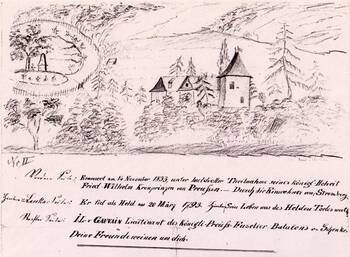 No II
Vordere Seite: Erneuert am 14 November 1833, unter huldvoller Theilnahme seiner Königl Hoheit
Fried. Wilhelm Kronprinzen von Preußen ... Durch die Einwohner von Stromberg.
Linke Seite: Er fiel als Held am 20 März 1793. Leben aus des Helden Todes
Rechte Seite: Lieutenant des Königli Preuß. Fuselier Batalions v. Schenke.
Deine Freunde weinen um dich.